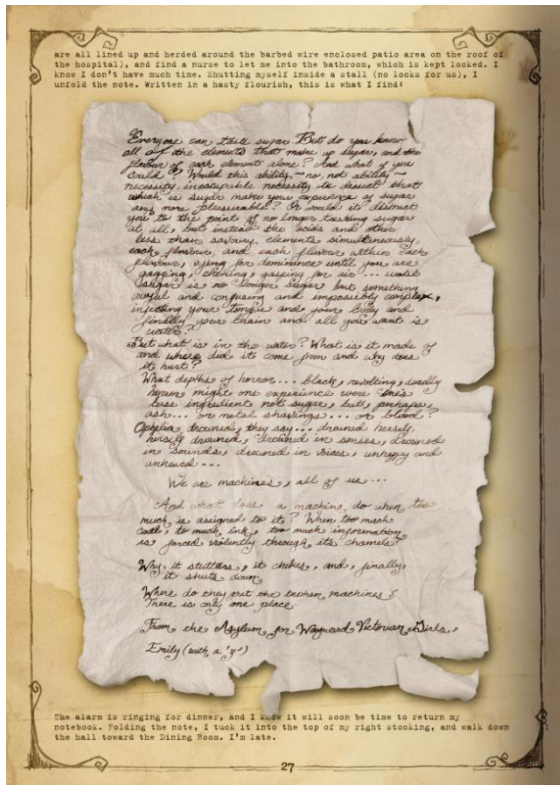 are all lined up and herded around the barbed wire enclosed patio area on the roof of
the hospital), and find a nurse to let me into the bathroom, which is kept locked. I
know I don't have much time. Shutting myself inside a stall (no locks for us), I
unfold the note. Written in a hasty flourish, this is what I find:
Everyone can taste sugar. But do you know
all of the elements that make up sugar, and the
flavour of each element alone? And what if you
could? Would this ability, - no, not ability -
necessity, inescapable necessity to dissect that
which is sugar make your experience of sugar
any more pleasurable? Or would it distract
you to the point of no longer tasting sugar
at all, but instead the acids and other
less than savory elements simultaneously,
each flavour, and each flavour within each
flavour, vying for dominance until you are
gagging, choking, gasping for air... until
sugar is no longer sugar but something
awful and confusing and impossibly complex,
infecting your tongue and your body and
finally your brain and all you want is
water?
But what is in the water? What is it made of
and where did it come from and why does
it hurt?
What depths of horror... black, revolting,
horror might one experience were one's
less ingredient not sugar, but, perhaps,
ash... or metal shavings... or blood?
Ophelia drowned, they say... drowned herself,
herself drowned, drowned in senses, drowned
in sounds, drowned in voices, unhappy and
unheard...
We are machines, all of us...
And what does a machine do when too
much is assigned to it? When too much
coal, to much ink, too much information
is forced violently through its channels?
Why, it stutters, it chokes, and, finally,
it shuts down.
Where do they put the broken machines?
There is only one place.
From the Asylum for Wayward Victorian Girls,
Emily (with a 'y')
The alarm is ringing for dinner, and I know it will soon be time to return my
notebook. Folding the note, I tuck it into the top of my right stocking, and walk down
the hall toward the Dining Room. I'm late.
27